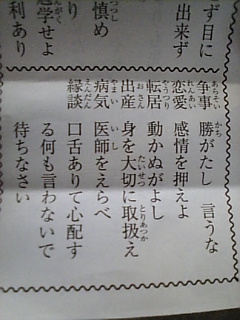 ず目に
出来ず
慎め
り
学せよ
利あり
争事 勝がたし 言うな
恋愛 感情を押えよ
転居 動かぬがよし
出産 身を大切に取扱え
病気 医師をえらべ
縁談 口舌ありて心配す
る何も言わないで
待ちなさい